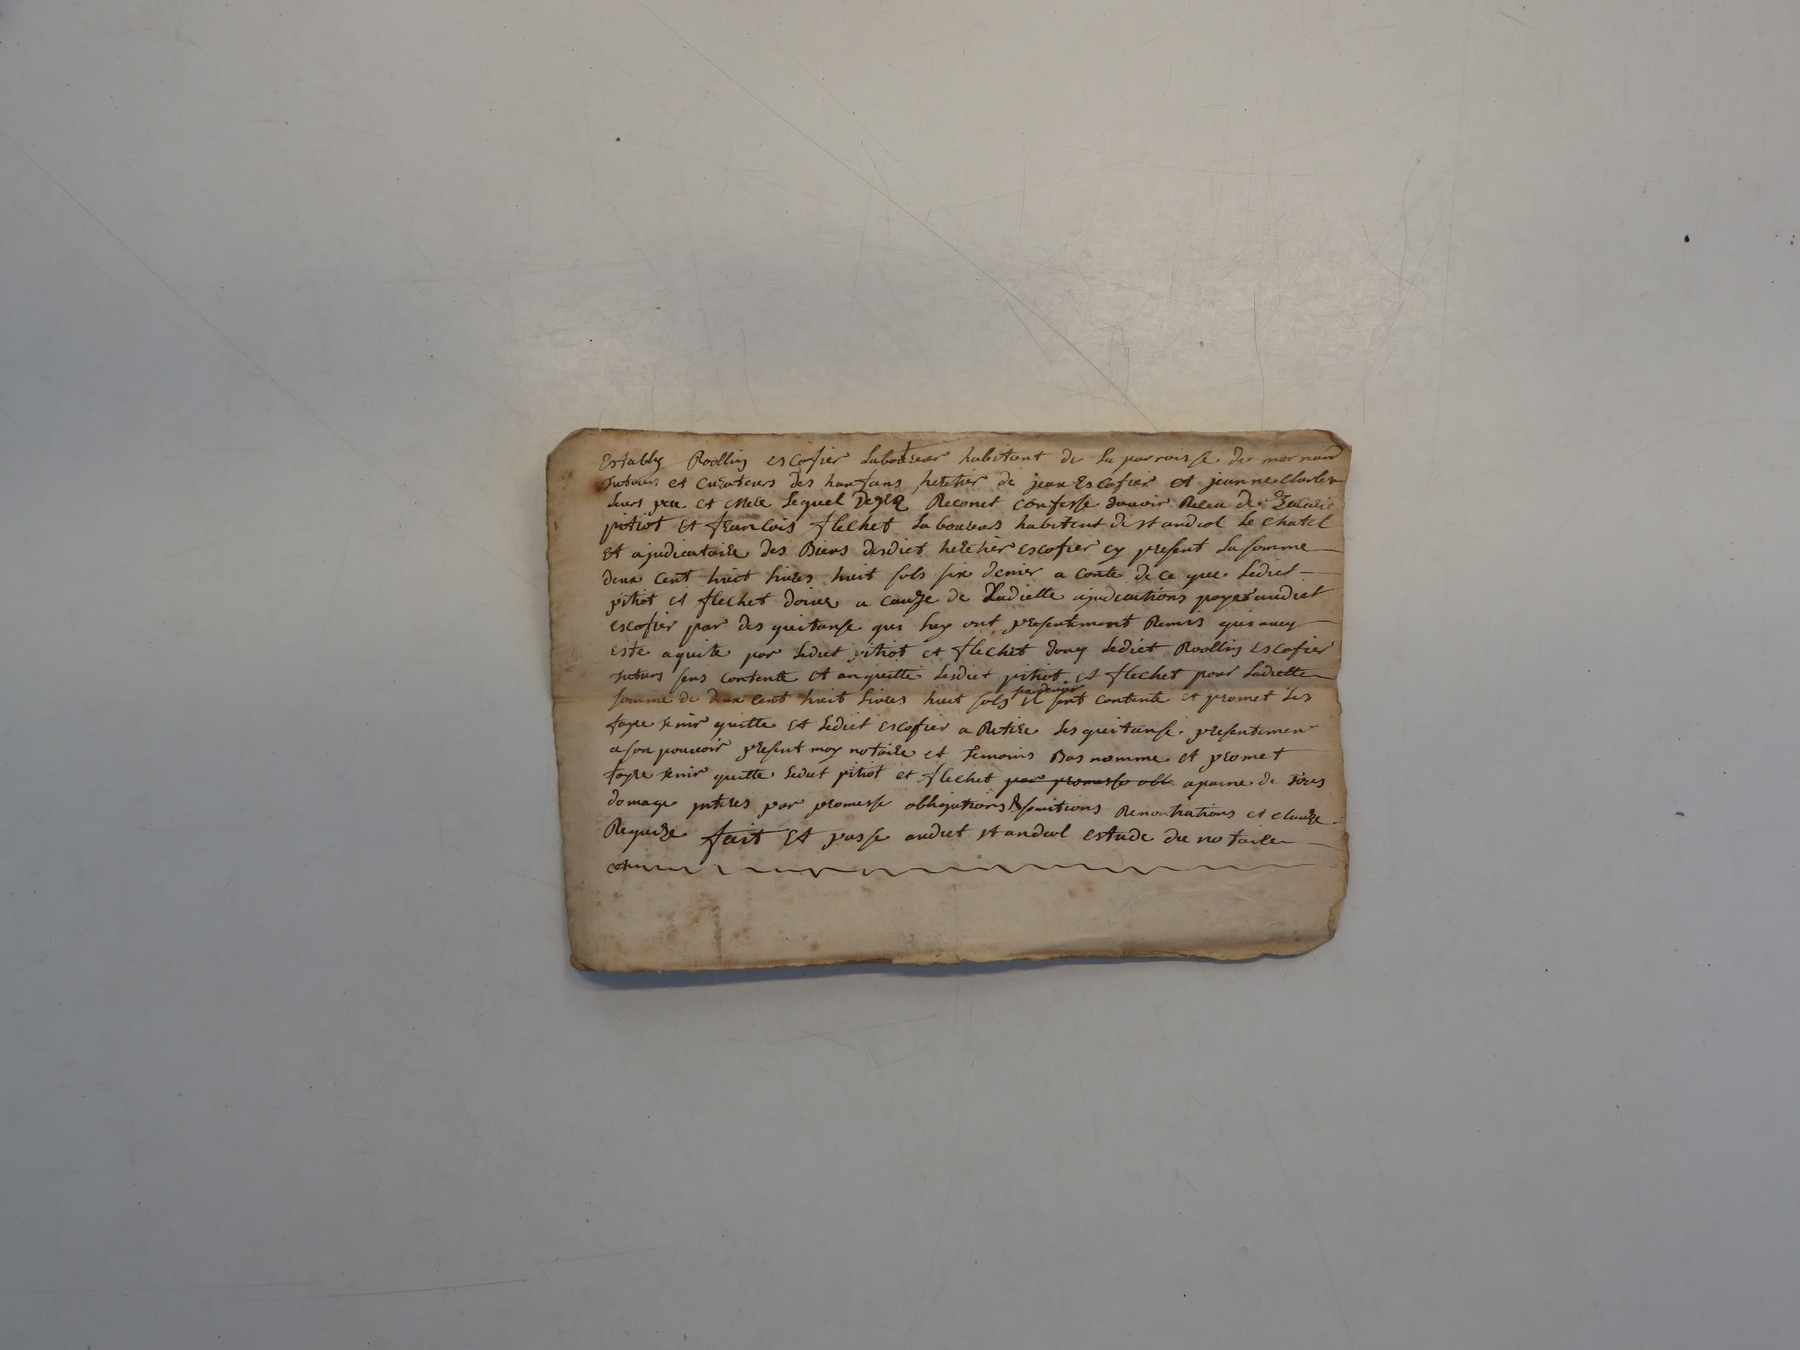 Establÿ Roollin escofier laboureur habitant de la parroisse de mornand
tuteurs et curateurs des hanfans heretier de jean Escofier et jeanne
leurs pere et mere lequel De gre Reconet confesse davoir Receu de Zacarie
pitiot et francois flechet laboureurs habitent de st andeol le chatel
et ajudicataire des Biens desdict heretier escofier cy present la somme
deux cent huict livres huit sols six denier a conte de ce que ledict
pitiot et flechet doive a cauze de Ladicte ajudications payer audict
escofier par des quitanse qui hay ont presentement Remis qui
este aquite par ledict pitiot et flechet donq lediet Roollin escofier
tuteurs sens contente et an quitte lesdict pitiot et flechet pour Ladicte
somme de deux cent huit livres huit sols six denier il sent contente et promet les
fayre tenir quitte et ledict escofier a Retire les quitanse presentemen
a son pouvoir present moy notaire et temoins Bas nomme et promet
fayre tenir quitte ledict pitiot et flechet par promesse obl a paine de tous
domage interes par promesse obligations soumitions Renontiations et clauze
Requize fait et passe audict st andeol estude du notaire